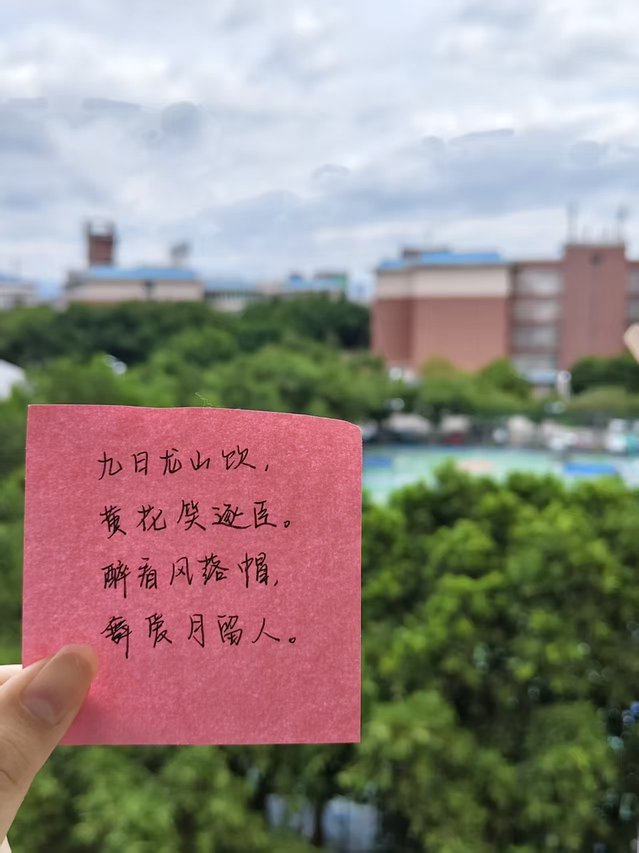 九日龙山饮,
黄花笑逐臣。
醉看风落帽,
舞爱月留人。